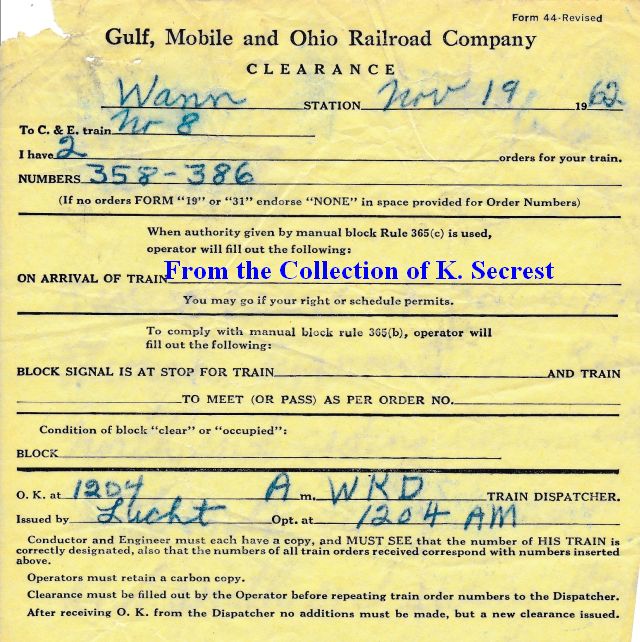 Form 44-Revised
Gulf, Mobile and Ohio Railroad Company
CLEARANCE
Wann STATION Nov 19 1962
To C. & E. train No 8
I have 2 orders for your train.
NUMBERS 358-386
(If no orders FORM "19" or "31" endorse "NONE" in space provided for Order Numbers)
When authority given by manual block Rule 365(c) is used,
operator will fill out the following:
ON ARRIVAL OF TRAIN From the Collection of K. Secrest
You may go if your right or schedule permits.
To comply with manual block rule 365(b), operator will
fill out the following:
BLOCK SIGNAL IS AT STOP FOR TRAIN AND TRAIN
TO MEET (OR PASS) AS PER ORDER NO.
Condition of block "clear" or "occupied":
BLOCK
O. K. at 1204 A m, WKD TRAIN DISPATCHER.
Issued by Lucht Opt. at 1204 AM
Conductor and Engineer must each have a copy, and MUST SEE that the number of HIS TRAIN is
correctly designated, also that the numbers of all train orders received correspond with numbers inserted
above.
Operators must retain a carbon copy.
Clearance must be filled out by the Operator before repeating train order numbers to the Dispatcher.
After receiving O. K. from the Dispatcher no additions must be made, but a new clearance issued.